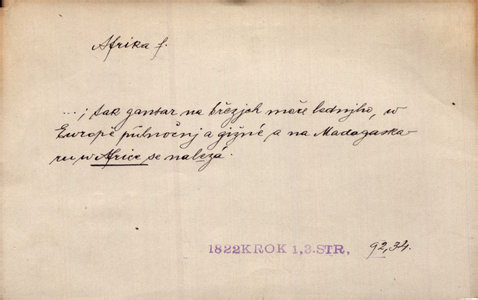 Afrika f.
...; tak gantar na březjch moře lednjho, w
Europě půlnočnj a gižné a na Madagaska-
ru w Africe se nalezá.
1822KROK 1,3.STR, 92,34.